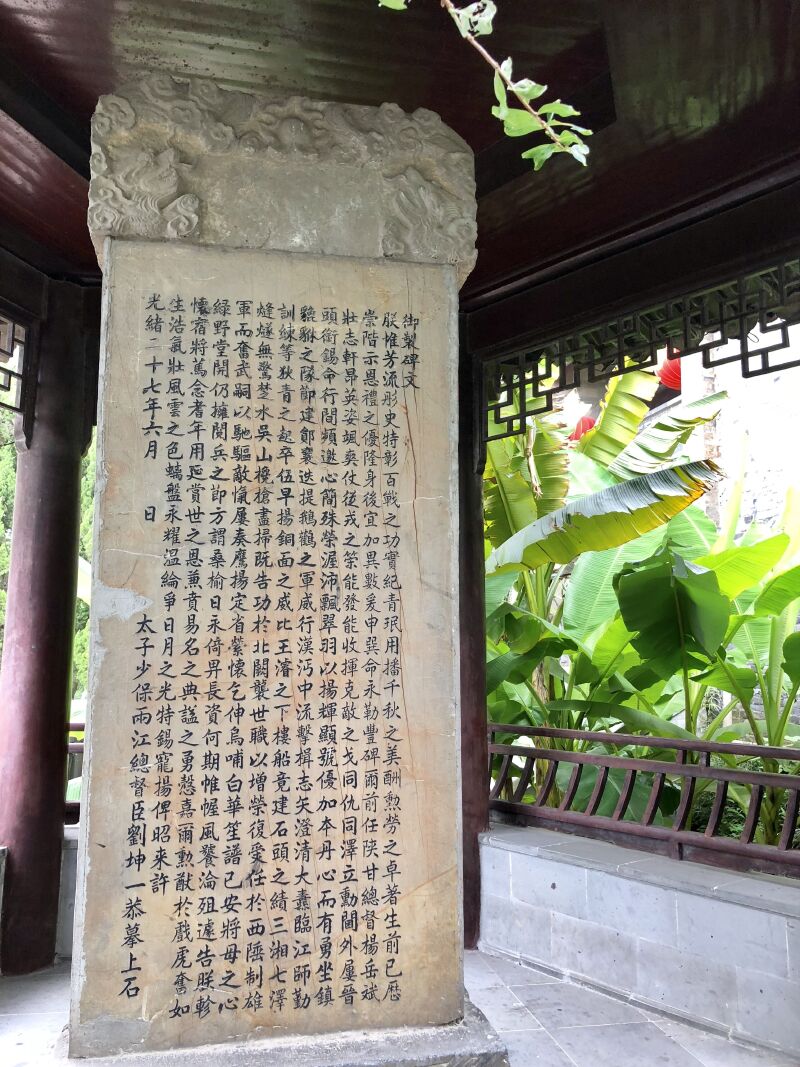 御製碑文
朕惟芳流彤史特彰百戰之功實紀青珉用播千秋之美酬勲勞之卓著生前已歷
崇階示恩禮之優隆身後宜加異數爰申巽命永勒豐碑爾前任陜甘總督楊岳斌
壯志軒昂英姿颯爽仗從戎之策能發能收揮克敵之戈同仇同澤立勳閫外屢晉
頭銜錫命行間頻邀心簡殊榮渥沛飄翠羽以揚輝顯號優加本丹心而有勇坐鎮
貔貅之隊節建鄖襄迭提鵝鸛之軍威行漢沔中流擊楫志矢澄清大纛臨江師勤
訓練等狄青之起卒伍早揚銅面之威比王濬之下樓船竟建石頭之績三湘七澤
烽燧無驚楚水吳山欃槍盡掃既告功於北闕襲世職以增榮復受任於西陲制雄
軍而奮武嗣以馳驅敵愾屢奏鷹揚定省縈懷乞伸烏哺白華笙譜已安將母之心
綠野堂開仍擁閱兵之節方謂桑榆日永倚畀長資何期帷幄風饕淪殂遽告朕軫
懷宿將篤念耆年用延賞世之恩兼賁易名之典諡之勇慤嘉爾勲猷於戲虎奮如
生浩氣壯風雲之色螭盤永耀溫綸爭日月之光特錫寵揚俾昭來許
光緒二十七年六月 日 太子少保兩江總督臣劉坤一恭摹上石